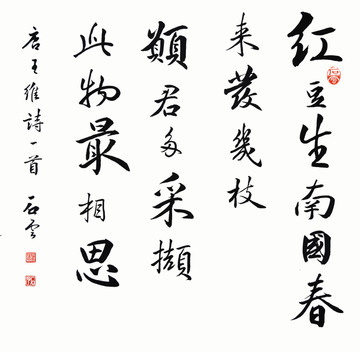 紅豆生南國春
来發幾枝
願君多采擷
此物最相思
唐王維詩一首 石雲